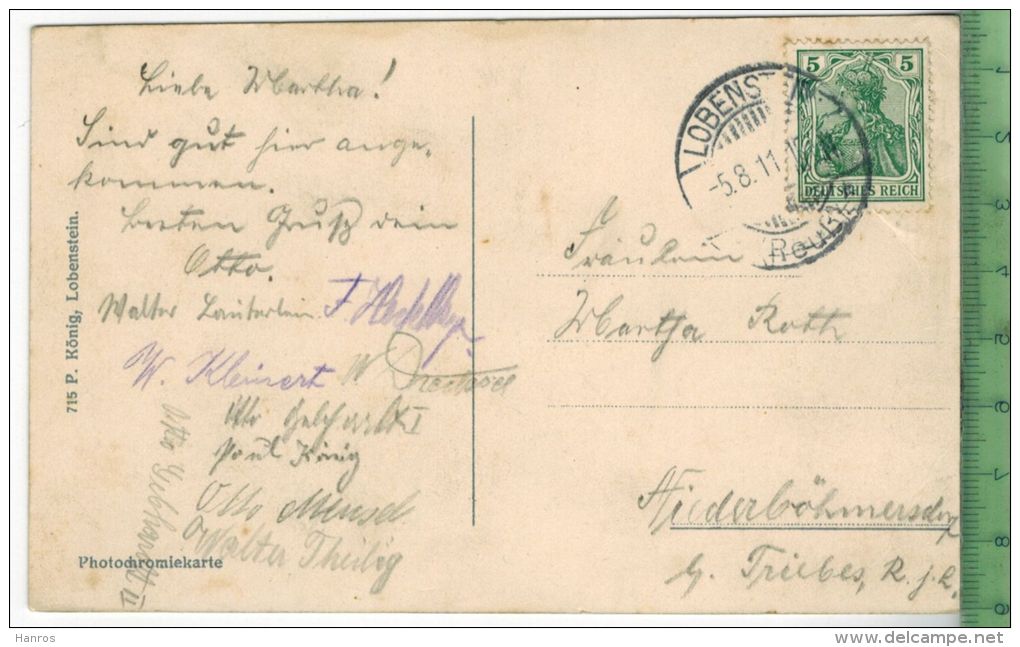 Liebe Martha!
Sind gut hier ange-
kommen.
besten Gruß dein
Otto.
Walter
W. Kleinert W
Otto Gebhardt I
Paul König
Otto Mensel
Walter Theilig
Otto Gebhardt II
715 P. König, Lobenstein.
Photochromiekarte
LOBENSTEIN
-5.8.11.
(Reuß)
5 5
DEUTSCHES REICH
Fräulein
Martha Roth
Niederböhmersdorf
b. Triebes, R. j. L.
Hanros
www.delcampe.net